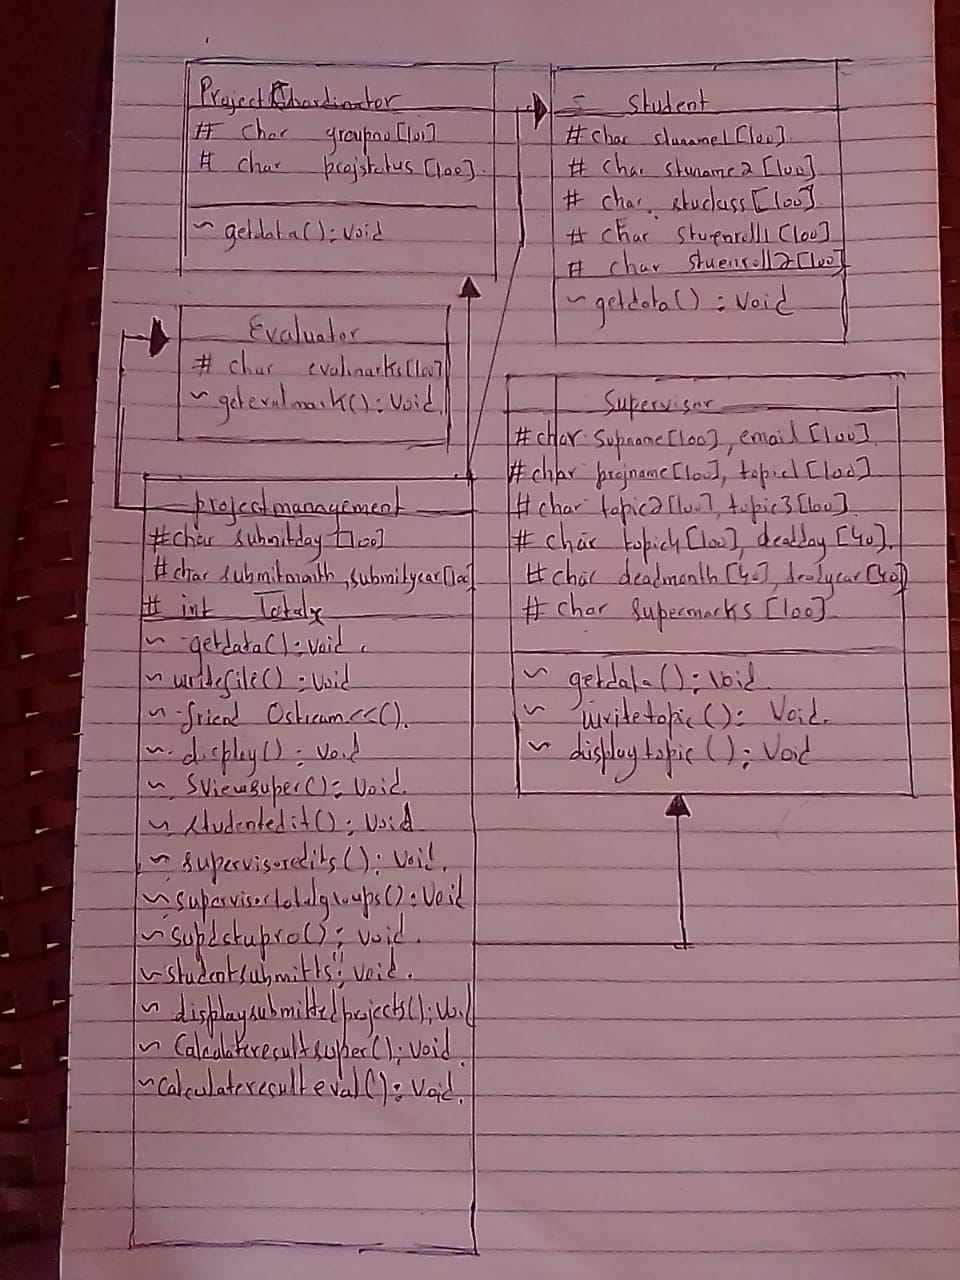 Project Choardinator
# char groupno[100]
# char projstatus [100].
~ getdata() : Void
Student
# char stuname1 [100]
# char stuname2 [100]
# char. stuclass [100]
# char stuenroll1 [100]
# char stuenroll2 [100]
~ getdata() : Void
Evaluator
# char evalmarks[100]
~ getevalmark() : Void.
Supervisor
# char supname [100], email [100]
# char projname [100], topic1 [100]
# char topic2 [100], topic3 [100].
# char topic4 [100], deadday [40].
# char deadmonth [40], deadyear [40]
# char supermarks [100].
~ getdata() : Void.
~ writetopic () : Void.
~ displaytopic () : Void
projectmanagement
# char submitday [100]
# char submitmonth, submityear[100]
# int Totalx
~ getdata() : Void.
~ writefile() : Void
~ friend Ostream<<().
~ display() : Void
~ Sviewsuper() : Void.
~ studentedit() : Void
~ supervisoredits () : Void.
~ supervisortotalgroups() : Void
~ supdstupro() : Void.
~ studentsubmitts() : Void.
~ displaysubmittedprojects() : Void
~ Calculateresultsuper() : Void.
~ calculateresulteval() : Void.